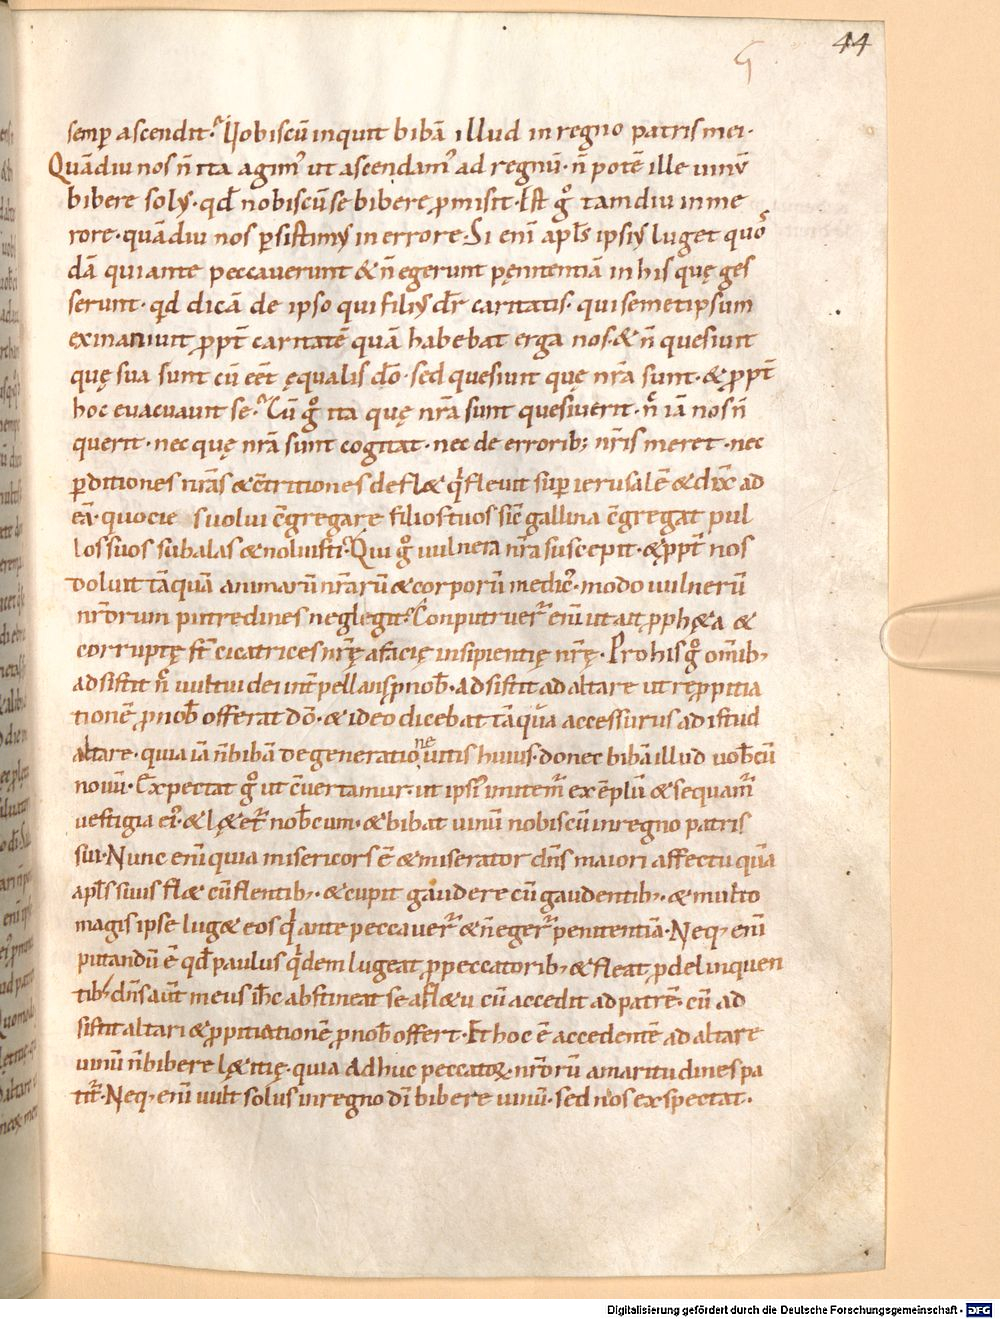 44
semp ascendit. Nobiscū inquit bibā illud in regno patris mei.
Quādiu nos n̄ ita agim᾽ ut ascendam᾽ ad regnū. n̄ potē ille uinū
bibere solus. qd̄ nobiscū se bibere p̄misit. Est g̊ tamdiu in me
rore. quādiu nos psistimus in errore. Si eni apl̄s ipsius luget quos
dā qui ante peccauerunt & n̄ egerunt pęnitentiā in his quę ges
serunt. qd dicā de ipso qui filius dr̄ caritatis. qui semetipsum
exinaniuit ppt̄ caritatē quā habebat erga nos. & n̄ quesiuit
quę sua sunt cū eēt ęqualis dō. sed quesiuit quę nr̄a sunt. & ppt̄
hoc euacuauit se. Cū g̊ ita quę nr̄a sunt quesiuerit. n̄ iā nos n̄
querit. nec quę nr̄a sunt cogitat. nec de errorib; nr̄is meret. nec
pditiones nr̄as & c̄tritiones defl& q̇ fleuit sup ierusalē & dix̄ ad
eā. quocie s uolui c̄gregare filios tuos sic̄ gallina c̄gregat pul
los suos sub alas & noluisti. Qui g̊ uulnera nr̄a suscepit. & ppt̄ nos
doluit tāquā animarū nr̄arū & corporū medic᾽. modo uulnerū
nr̄orum putredines neglegit. Conputruer̄ enī ut ait pph&a &
corruptę st̄ cicatrices nr̄ę a facię insipientię nr̄ę. Pro his g̊ omīb;
adsistit n̄ uultui dei int̄pellans p nob̄. Adsistit ad altare ut rę ppitia
tionē p nob̄ offerat dō. & ideo dicebat tāquā accessurus ad istud
altare. quia iā n̄ bibā de generatione uitis huius. donec bibā illud uob̄cū
nouū. Expectat g̊ ut c̄uertamur. ut ipsi᾽ imitem᾽ exēplū & sequam᾽
uestigia ei᾽. & l&et᾽ nob̄cum. & bibat uinū nobiscū in regno patris
sui. Nunc enī quia misericors ē & miserator dn̄s maiori affectu quā
apl̄s suus fl& cū flentib;. & cupit gaudere cū gaudentib;. & multo
magis ipse lug& eos q̇ ante peccauer̄ & n̄ eger̄ penitentiā. Neq; enī
putandū ē qd̄ paulus q̇dem lugeat p peccatorib; & fleat p delinquen
tib; dn̄s aūt meus ih̄c abstineat se a fl&u cū accedit ad patrē. cū ad
sistit altari & ppitiationē p nob̄ offert. Et hoc ē accedentē ad altare
uinū n̄ bibere l&itię. quia adhuc peccatoꝝ nr̄orū amaritudines pa
tit᾽. Neq; enī uult solus in regno dī bibere uinū. sed nos exspectat.
Digitalisierung gefördert durch die Deutsche Forschungsgemeinschaft - DFG